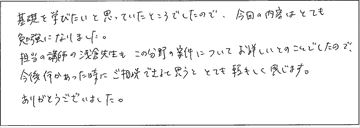 基礎を学びたいと思っていたところでしたので、今回の内容はとても
勉強になりました。
担当の講師の浅倉先生もこの分野の案件についてお詳しいとのことでしたので、
今後何かあった時にご相談できると思うととても頼もしく感じます。
ありがとうございました。